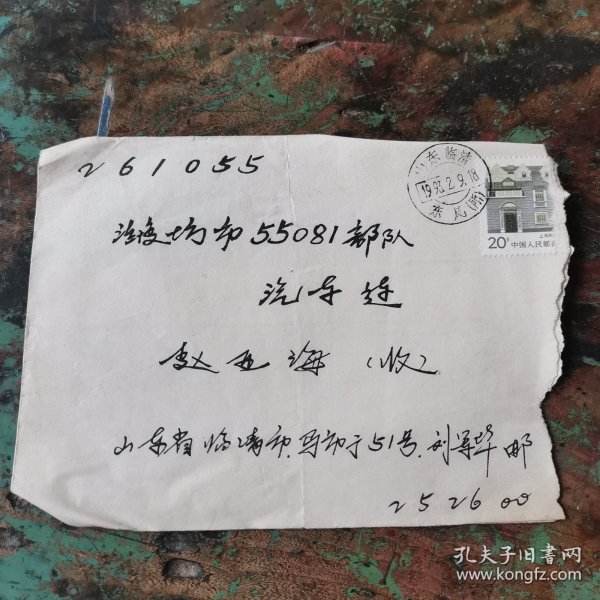 261055
潍坊市55081部队
汽车连
赵亚海(收)
山东省临清市马市街51号 刘 邮
252600
山东临清
1993.2.9.18
20分 中国人民邮政
上海民居
孔夫子旧书网
www.kongfz.com